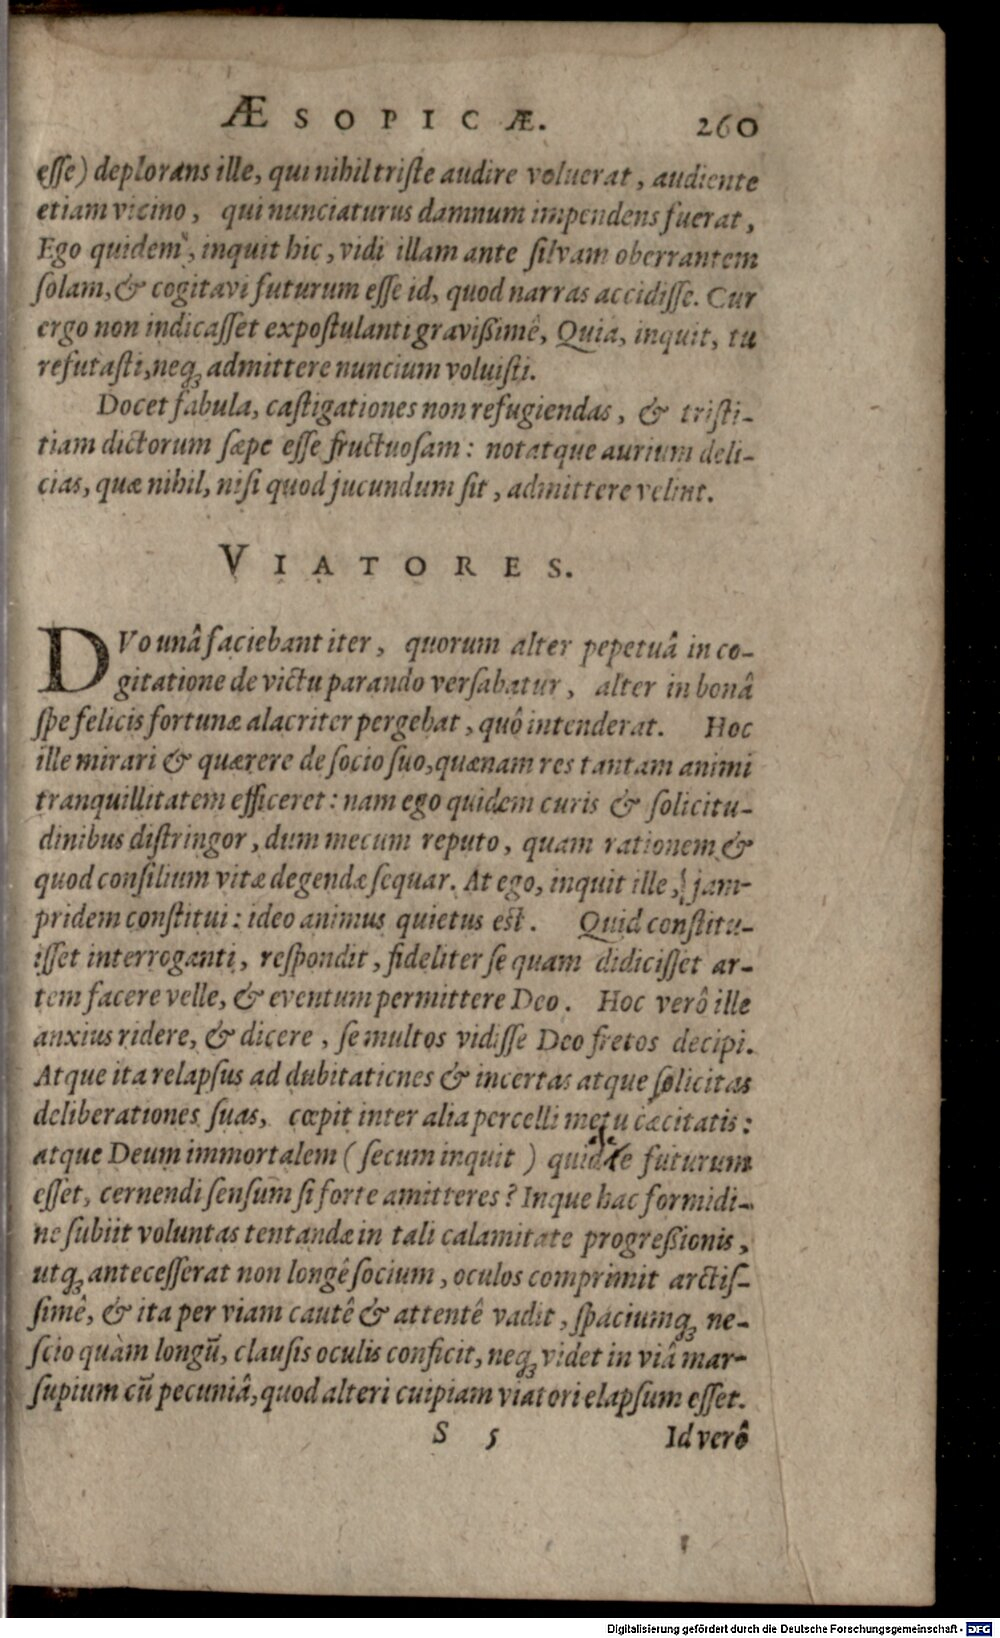 ÆSOPICÆ. 260
esse) deplorans ille, qui nihil triste audire voluerat, audiente
etiam vicino, qui nunciaturus damnum impendens fuerat,
Ego quidem, inquit hic, vidi illam ante silvam oberrantem
solam, & cogitavi futurum esse id, quod narras accidisse. Cur
ergo non indicasset expostulanti gravißimê, Quia, inquit, tu
refutasti, neq; admittere nuncium voluisti.
Docet fabula, castigationes non refugiendas, & tristi-
tiam dictorum sæpe esse fructuosam: notatque aurium deli-
cias, quæ nihil, nisi quod jucundum sit, admittere velint.
VIATORES.
DVo unâ faciebant iter, quorum alter pepetuâ in co-
gitatione de victu parando versabatur, alter in bonâ
spe felicis fortunæ alacriter pergebat, quô intenderat. Hoc
ille mirari & quærere de socio suo, quænam res tantam animi
tranquillitatem efficeret: nam ego quidem curis & solicitu-
dinibus distringor, dum mecum reputo, quam rationem &
quod consilium vitæ degendæ sequar. At ego, inquit ille, jam-
pridem constitui: ideo animus quietus est. Quid constitu-
isset interroganti, respondit, fideliter se quam didicisset ar-
tem facere velle, & eventum permittere Deo. Hoc verô ille
anxius ridere, & dicere, se multos vidisse Deo fretos decipi.
Atque ita relapsus ad dubitationes & incertas atque solicitas
deliberationes suas, cœpit inter alia percelli metu cæcitatis:
atque Deum immortalem (secum inquit) quid te futurum
esset, cernendi sensum si forte amitteres? Inque hac formidi-
ne subiit voluntas tentandæ in tali calamitate progreßionis,
utq; antecesserat non longê socium, oculos comprimit arctis-
simê, & ita per viam cautê & attentê vadit, spaciumq; ne-
scio quàm longū, clausis oculis conficit, neq; videt in viâ mar-
supium cū pecuniâ, quod alteri cuipiam viatori elapsum esset.
S 5 Id verô
Digitalisierung gefördert durch die Deutsche Forschungsgemeinschaft - DFG